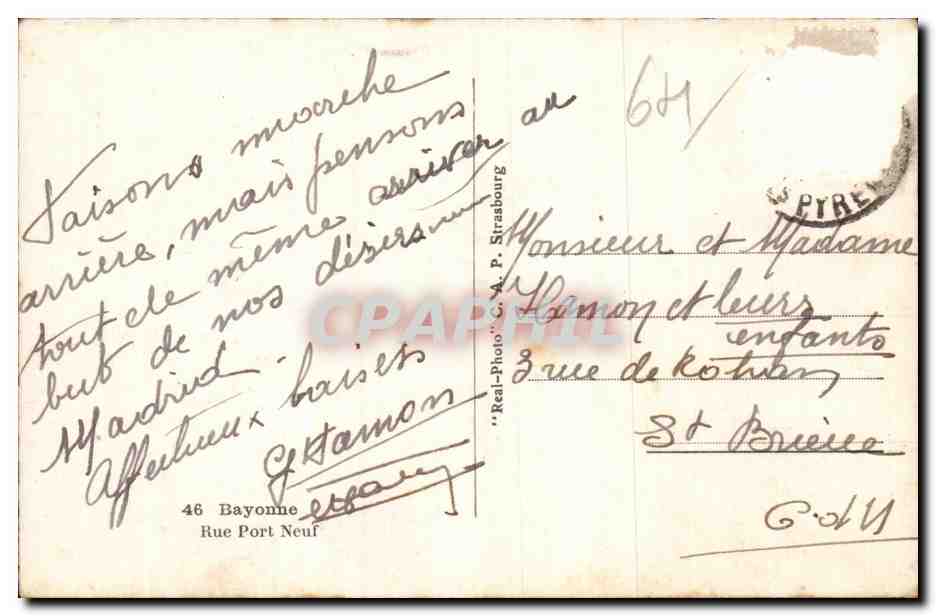 Faisons marche
arrière, mais pensons
tout de même arriver au
but de nos dézirs
Madrid.
Affectueux baisers
G Hamon
46 Bayonne
Rue Port Neuf
"Real-Photo" C. A. P. Strasbourg
64
PYRE
Monsieur et Madame
Hamon et leurs
enfants
3 rue de Rohan
St Brieuc
C-d N
CPAPHIL